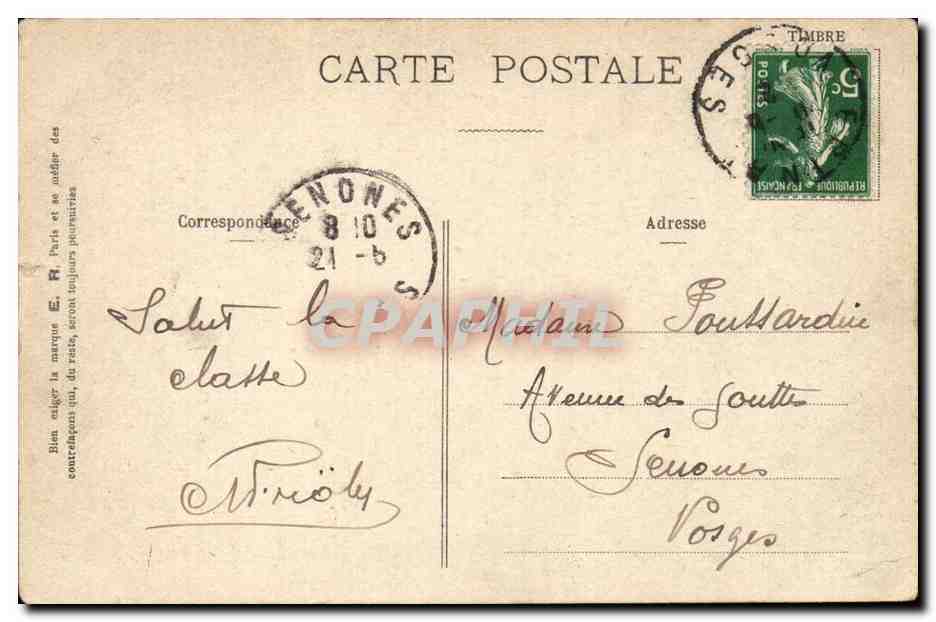 TIMBRE
CARTE POSTALE
5c
POSTES
REPUBLIQUE FRANÇAISE
SENONES
8 10
21 -6
S
Correspondance
Salut la
classe
Adresse
Madame
Avenue des Gouttes
Senones
Vosges
Bien exiger la marque E. R. Paris et se méfier des
contrefaçons qui, du reste, seront toujours poursuivies
CPAPHIL